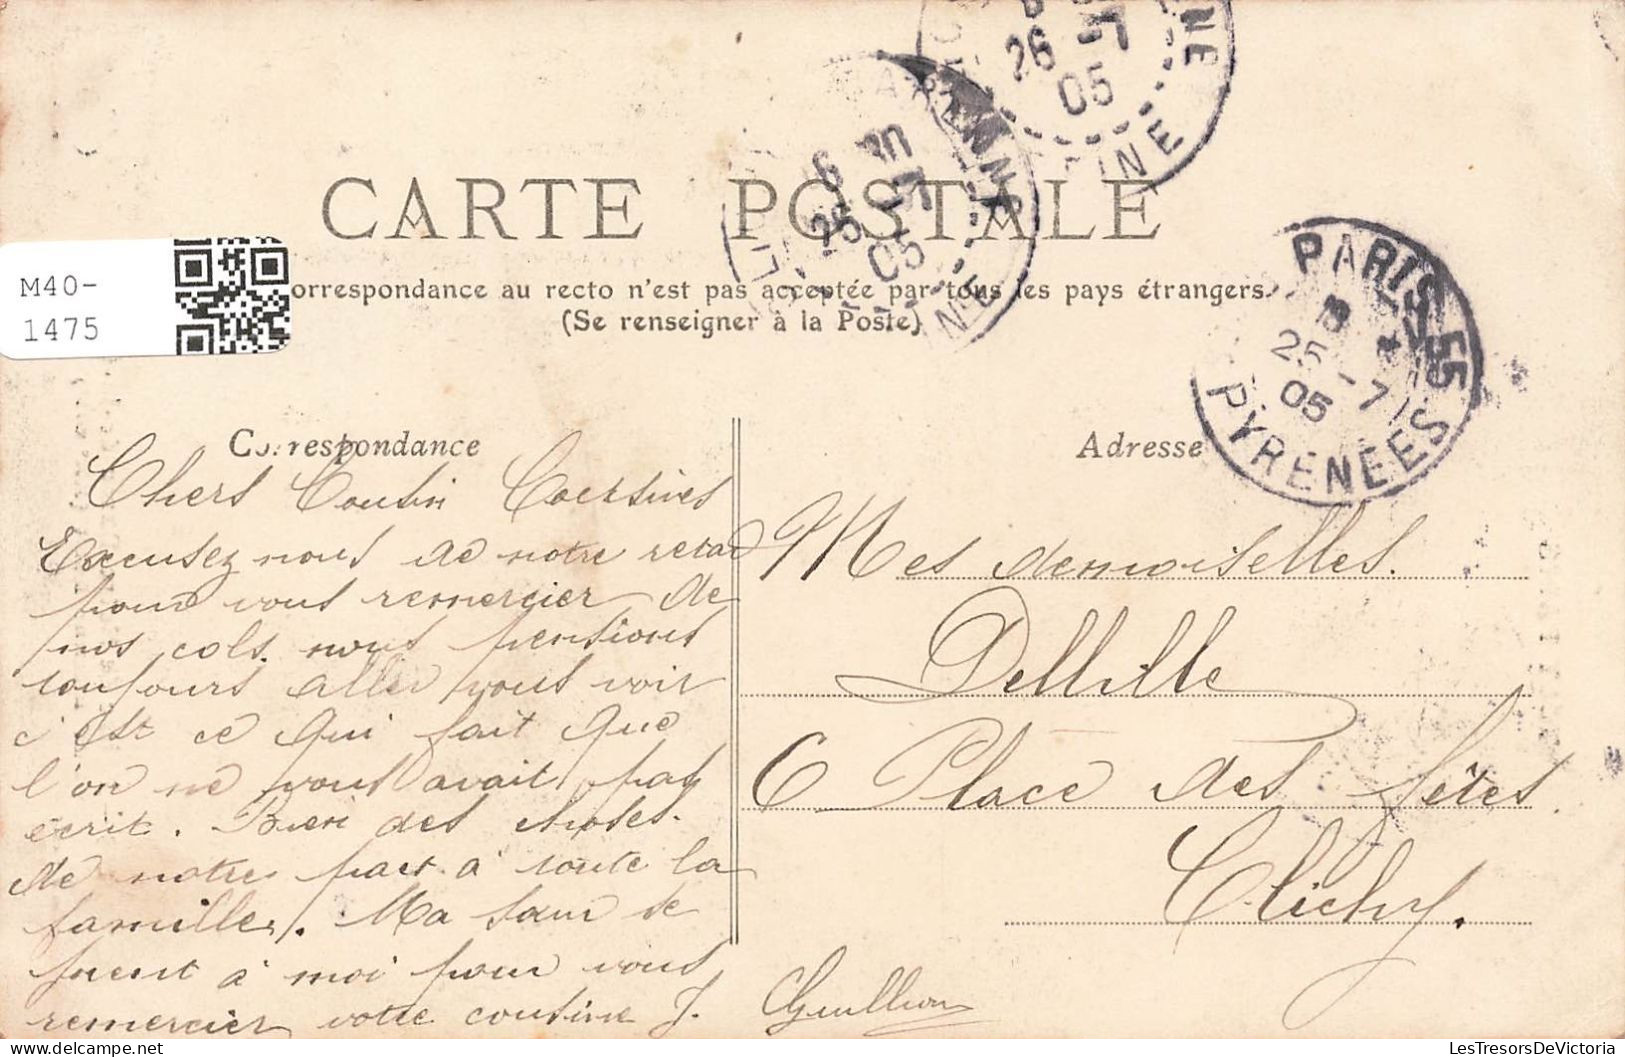 26 -7
05
NE
INE
6 30
25 -7
05
CARTE POSTALE
M40-
1475
orrespondance au recto n'est pas acceptée par tous les pays étrangers.
(Se renseigner à la Poste)
PARIS 55
25 -7
05
PYRENEES
Correspondance
Chers Cousin Coussines
Excusez nous de notre retard
pour vous remercier de
nos cols. nous pensions
toujours aller vous voir
c'est ce qui fait que
l'on ne vous avait pas
écrit. Bien des choses.
de notre part à toute la
famille. Ma sœur se
joient à moi pour vous
remercier votre cousine J. Guillion
Adresse
Mes demoiselles.
Dellille
6 Place des fêtes
Clichy.
LesTresorsDeVictoria